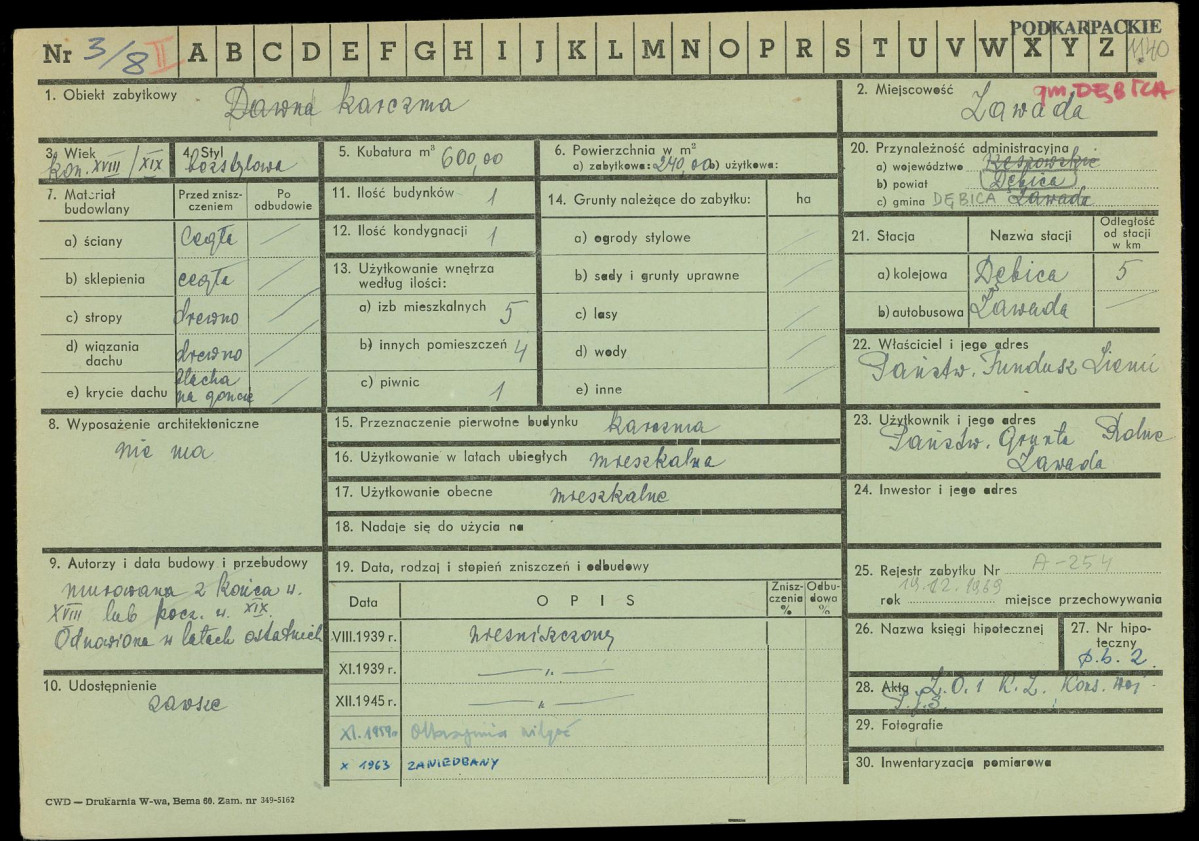 PODKARPACKIE
Nr 3/8 II A B C D E F G H I J K L M N O P R S T U V W X Y Z 1140
1. Obiekt zabytkowy Dawna karczma
2. Miejscowość gm. DĘBICA
Zawada
3. Wiek kon. XVIII/XIX
4. Styl bezstylowa
5. Kubatura m³ 600,00
6. Powierzchnia w m²
a) zabytkowa: 240,00 b) użytkowa:
20. Przynależność administracyjna
a) województwo Rzeszowskie
b) powiat Dębica
c) gmina DĘBICA Zawada
7. Materiał budowlany
Przed zniszczeniem
Po odbudowie
a) ściany cegła
b) sklepienia cegła
c) stropy drewno
d) wiązania dachu drewno
e) krycie dachu blacha na goncie
11. Ilość budynków 1
12. Ilość kondygnacji 1
13. Użytkowanie wnętrza według ilości:
a) izb mieszkalnych 5
b) innych pomieszczeń 4
c) piwnic 1
14. Grunty należące do zabytku: ha
a) ogrody stylowe
b) sady i grunty uprawne
c) lasy
d) wody
e) inne
21. Stacja
Nazwa stacji
Odległość od stacji w km
a) kolejowa Dębica 5
b) autobusowa Zawada
22. Właściciel i jego adres
Państw. Fundusz Ziemi
8. Wyposażenie architektoniczne
nie ma
15. Przeznaczenie pierwotne budynku karczma
16. Użytkowanie w latach ubiegłych mieszkalna
17. Użytkowanie obecne mieszkalne
18. Nadaje się do użycia na
23. Użytkownik i jego adres
Państw. Grunta Rolne
Zawada
24. Inwestor i jego adres
9. Autorzy i data budowy i przebudowy
murowana z końca w.
XVIII lub pocz. w. XIX.
Odnowiona w latach ostatnich
10. Udostępnienie
zawsze
19. Data, rodzaj i stopień zniszczeń i odbudowy
Data
OPIS
Zniszczenia %
Odbudowa %
VIII.1939 r. niezniszczony
XI.1939 r. — „ —
XII.1945 r. — „ —
XI. 1959 Olbrzymia wilgoć
X 1963 ZANIEDBANY
25. Rejestr zabytku Nr A-254
rok 19.12.1969 miejsce przechowywania
26. Nazwa księgi hipotecznej
27. Nr hipoteczny
p.b. 2.
28. Akta Z. O. i K. Z. Kons. Woj.
29. Fotografie
30. Inwentaryzacja pomiarowa
CWD — Drukarnia W-wa, Bema 60. Zam. nr 349-5162